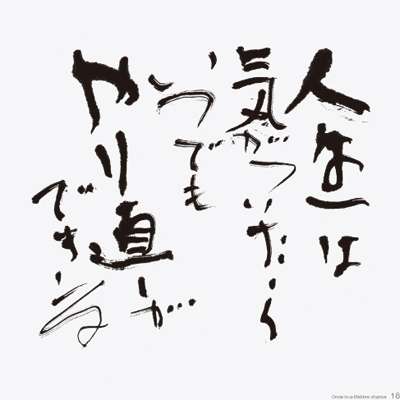 人生は
気がついたら
いつでも
やり直しが
できる
Once in a lifetime chance 16